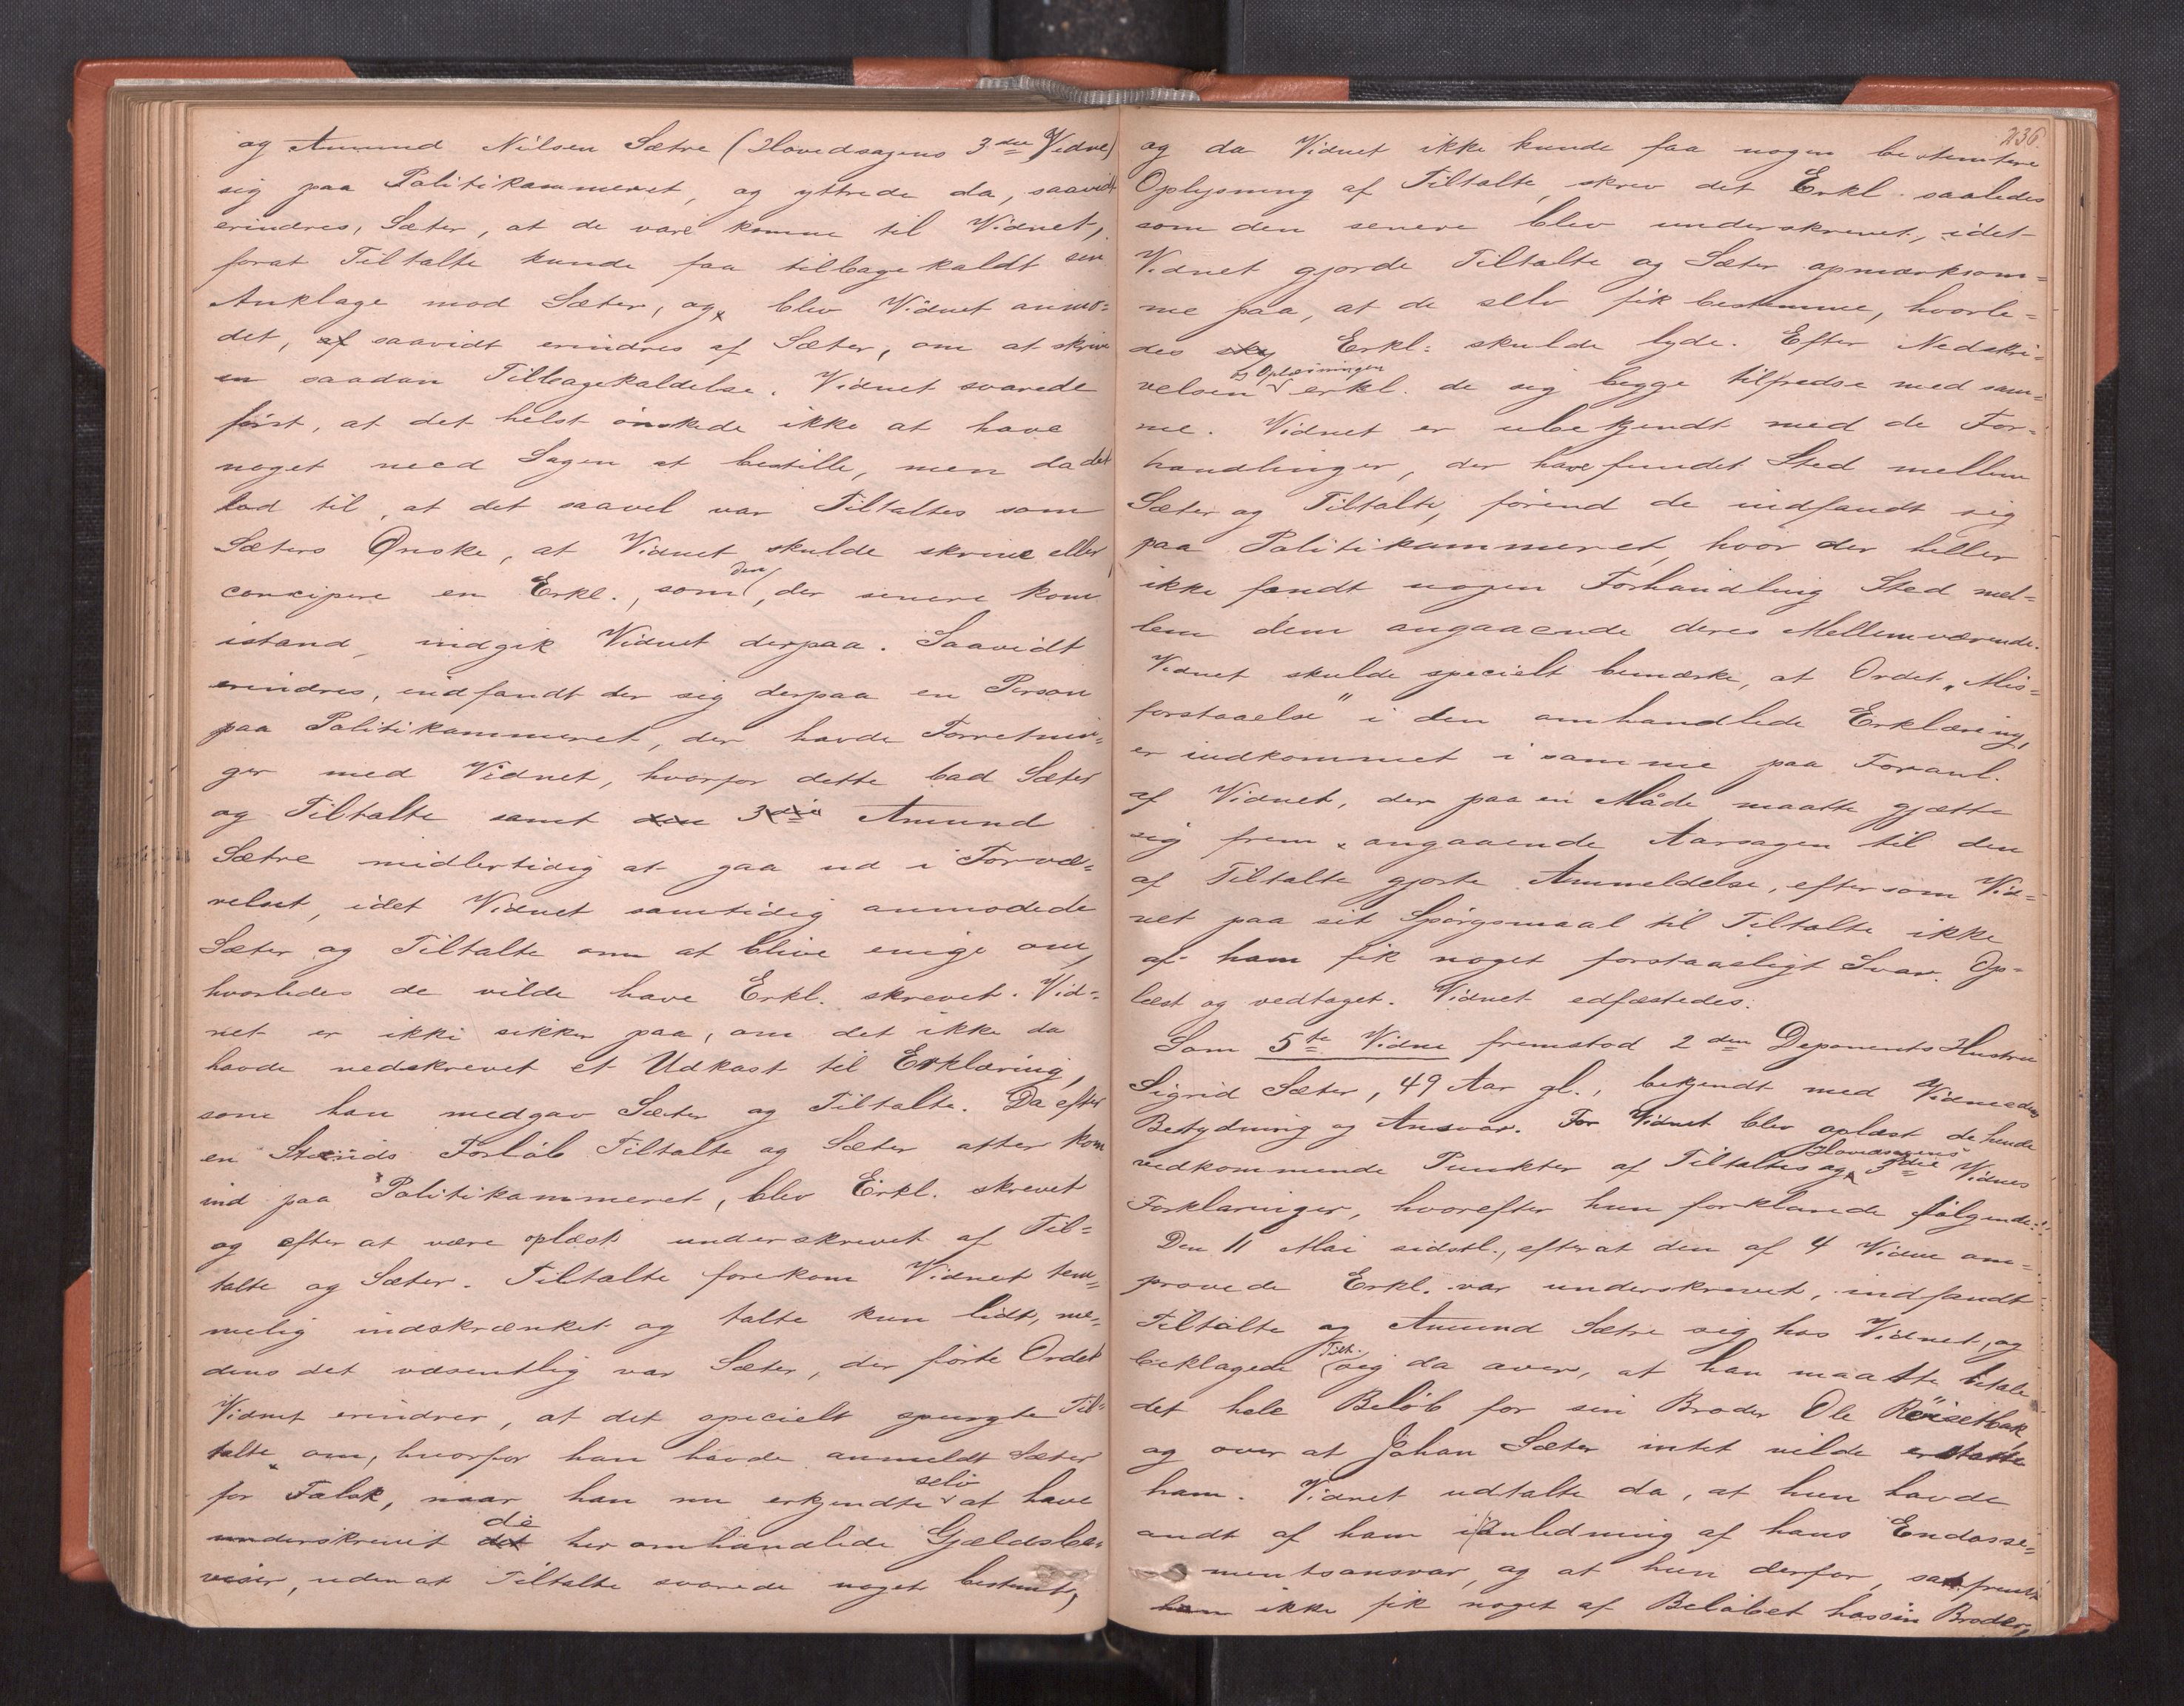 og Amund Nilsen Sætre (Hovedsagens 3die Vidne)
sig paa Politikammeret, og yttrede da, saavidt
erindres, Sæter, at de vare komne til Vidnet,
forat Tiltalte kunde faa tilbagekaldt sin
Anklage mod Sæter, og blev Vidnet anmo-
det, af saavidt erindres af Sæter, om at skrive
en saadan Tilbagekaldelse. Vidnet svarede
først, at det helst ønskede ikke at have
noget med Sagen at bestille, men da det
lod til, at det saavel var Tiltaltes som
Sæters Ønske, at Vidnet skulde skrive eller
concipere en Erkl., som den, der senere kom
istand, indgik Vidnet derpaa. Saavidt
erindres, indfandt der sig derpaa en Person
paa Politikammeret, der havde Forretnin-
ger med Vidnet, hvorfor dette bad Sæter
og Tiltalte samt den 3die Amund
Sætre midlertidig at gaa ud i Forvæ-
relset, idet Vidnet samtidig anmodede
Sæter og Tiltalte om at blive enige om,
hvorledes de vilde have Erkl. skrevet. Vid-
net er ikke sikker paa, om det ikke da
havde nedskrevet et Udkast til Erklæring,
som han medgav Sæter og Tiltalte. Da efter
en Stunds Forløb Tiltalte og Sæter atter kom
ind paa Politikammeret, blev Erkl. skrevet
og efter at være oplæst underskrevet af Til-
talte og Sæter. Tiltalte forekom Vidnet tem-
melig indskrænket og talte kun lidt, me-
dens det væsentlig var Sæter, der førte Ordet
Vidnet erindrer, at det specielt spurgte Til-
talte om, hvorfor han havde anmeldt Sæter
for Falsk, naar han nu erkjendte selv at have
underskrevet det de her omhandlede Gjældsbe-
viser, uden at Tiltalte svarede noget bestemt,
236.
og da Vidnet ikke kunde faa nogen bestemtere
Oplysning af Tiltalte, skrev det Erkl. saaledes
som den senere blev underskrevet, idet
Vidnet gjorde Tiltalte og Sæter opmærksom-
me paa, at de selv fik bestemme, hvorle-
des Erkl: skulde lyde. Efter Nedskri-
velsen og Oplæsningen erkl. de sig begge tilfredse med sam-
me. Vidnet er ubekjendt med de For-
handlinger, der have fundet Sted mellem
Sæter og Tiltalte, førend de indfandt sig
paa Politikammeret, hvor der heller
ikke fandt nogen Forhandling Sted mel-
lem dem angaaende deres Mellemværende.
Vidnet skulde specielt bemærke, at Ordet „Mis-
forstaaelse" i den omhandlede Erklæring,
er indkommet i samme paa Foranl.
af Vidnet, der paa en Måde maatte gjætte
sig frem angaaende Aarsagen til den
af Tiltalte gjorte Anmeldelse, eftersom Vid-
net paa sit Spørgsmaal til Tiltalte ikke
af ham fik noget forstaaeligt Svar. Op-
læst og vedtaget. Vidnet edfæstedes.
Som 5te Vidne fremstod 2den Deponents Hustru
Sigrid Sæter, 49 Aar gl., bekjendt med Vidneedens
Betydning og Ansvar. For Vidnet blev oplæst de hende
vedkommende Punkter af Tiltaltes og Hovedsagens 3die Vidnes
Forklaringer, hvorefter hun forklarede følgende:
Den 11 Mai sidstl., efterat den af 4 Vidne om-
provede Erkl. var underskrevet, indfandt
Tiltalte og Amund Sætre sig hos Vidnet, og
beklagede Tilt. sig da over, at han maatte betale
det hele Beløb for sin Broder Ole Røisetbak
og over at Johan Sæter intet vilde erstatte
ham. Vidnet udtalte da, at hun havde
ondt af ham i Anledning af hans Endosse-
mentsansvar, og at hun derfor, safremt
han ikke fik noget af Beløbet hos sin Broder,